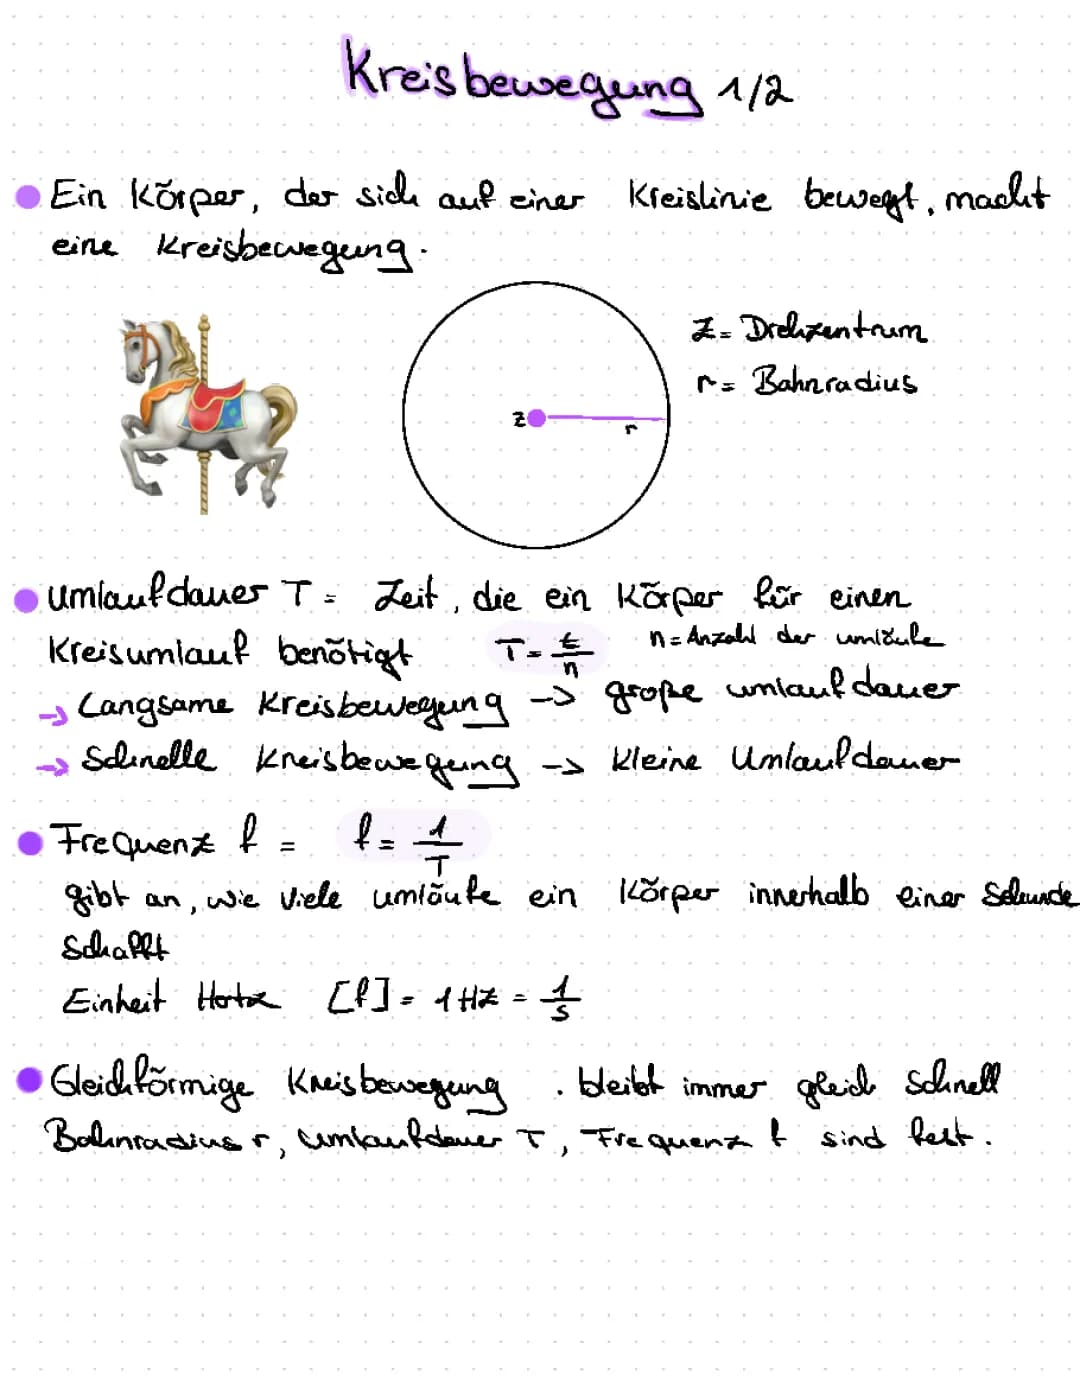 Kreisbewegung 1/2
Ein Körper, der sich auf einer Kreislinie bewegt, macht
eine Kreisbewegung.
Z = Drehzentrum
r = Bahnradius
Z
r
Umlaufdauer T = Zeit, die ein Körper für einen
Kreisumlauf benötigt T = t/n n = Anzahl der Umläufe
→ Langsame Kreisbewegung → große Umlaufdauer
→ Schnelle Kreisbewegung → kleine Umlaufdauer
Frequenz f = f = 1/T
gibt an, wie viele Umläufe ein Körper innerhalb einer Sekunde
schafft
Einheit Hertz [f] = 1 Hz = 1/s
Gleichförmige Kreisbewegung . bleibt immer gleich schnell
Bahnradius r, Umlaufdauer T, Frequenz f sind fest.